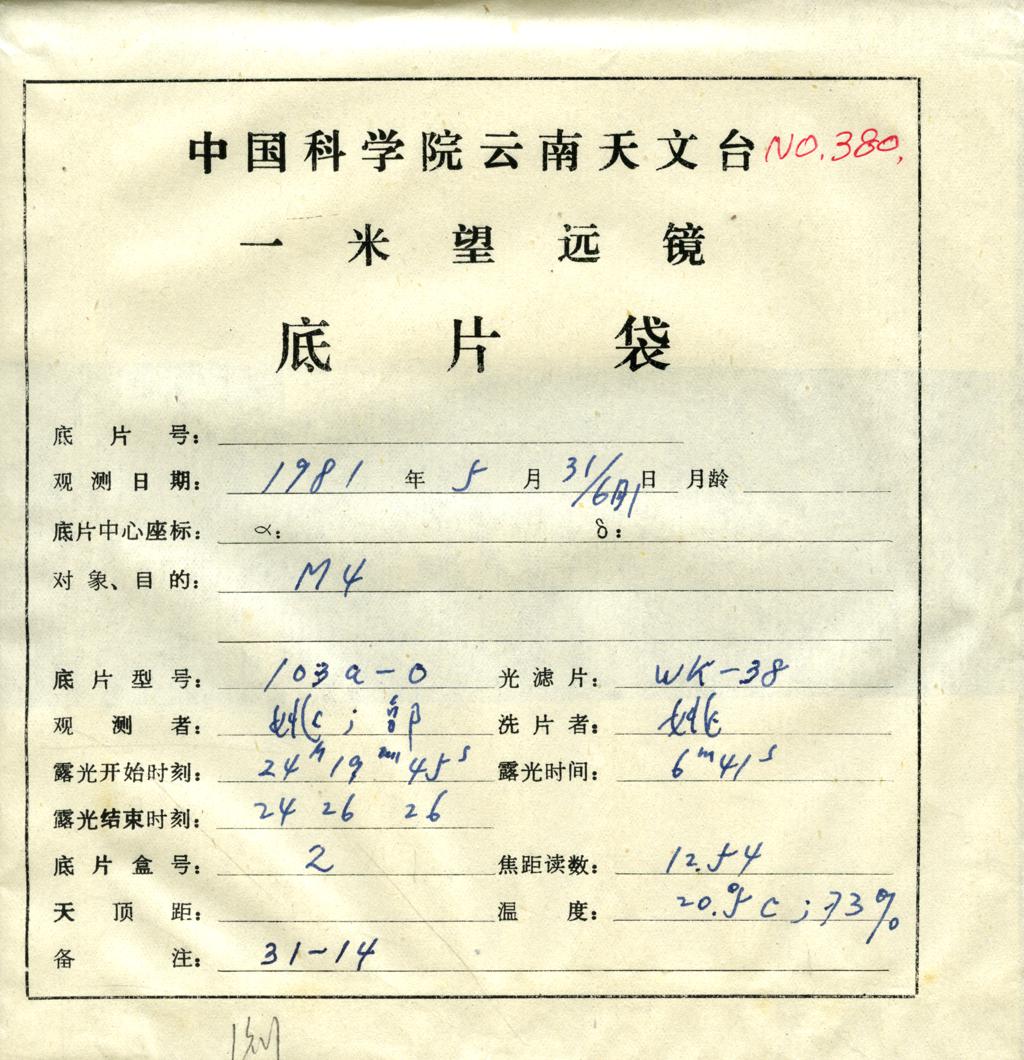 中国科学院云南天文台 NO.380.
一米望远镜
底片袋
底片号:
观测日期: 1981 年 5 月 31/6月1 日 月龄
底片中心座标: α: δ:
对象、目的: M4
底片型号: 103a-O 光滤片: WK-38
观测者: 洗片者:
露光开始时刻: 24h19m45s 露光时间: 6m41s
露光结束时刻: 24 26 26
底片盒号: 2 焦距读数: 12.54
天顶距: 温度: 20.°5C;73%
备注: 31-14